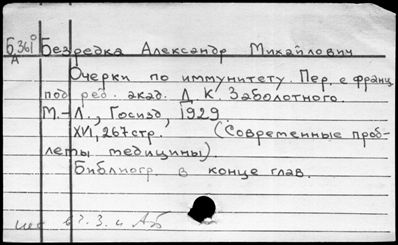 Б 361 Безредка Александр Михайлович
А
Очерки по иммунитету. Пер. с франц.
под ред. акад. Д. К. Заболотного.
М.-Л., Госизд, 1929.
XVI, 267 стр. (Современные проб-
лемы медицины).
Библиогр. в конце глав.